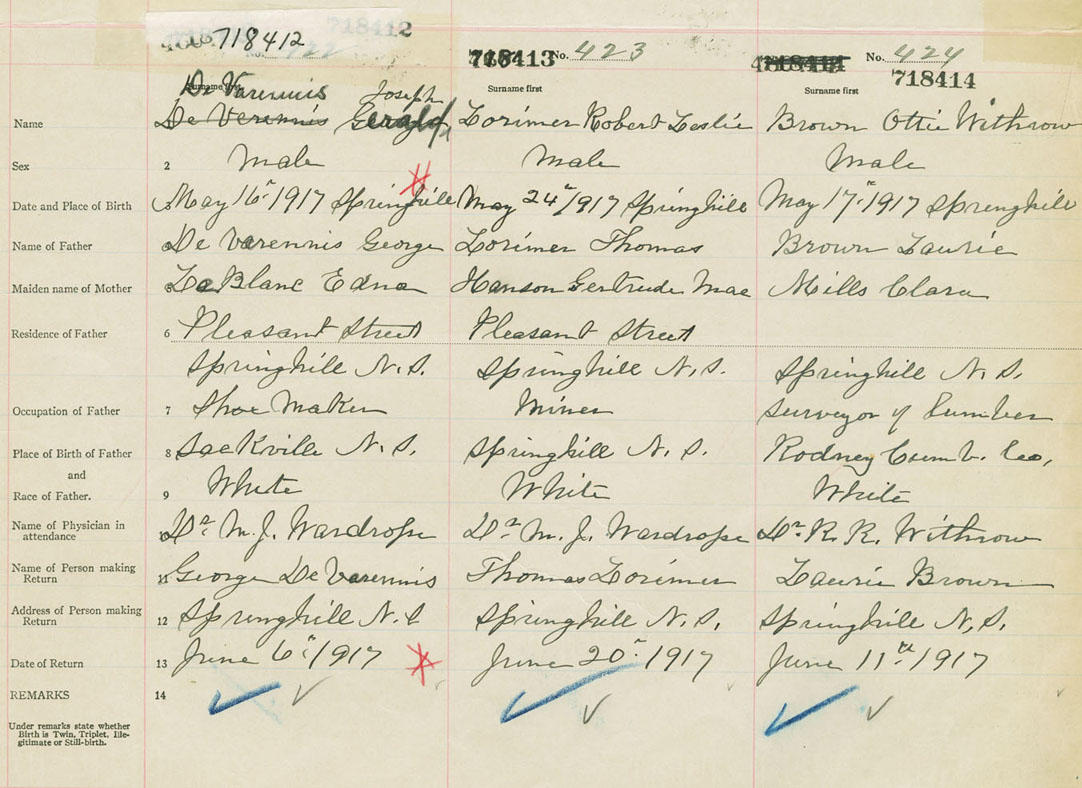 718412 718412
No. 422
718413 No. 423
No. 424
718414
Surname first
De Varennis Joseph
Surname first
Surname first
Name De Verennis Gerald Lorimer Robert Leslie Brown Ottie Withrow
Sex 2 Male Male Male
Date and Place of Birth May 16" 1917 Springhill May 24" 1917 Springhill May 17" 1917 Springhill
Name of Father De Varennis George Lorimer Thomas Brown Laurie
Maiden name of Mother LeBlanc Edna Hanson Gertrude Mae Mills Clara
Residence of Father 6 Pleasant Street Pleasant Street
Springhill N.S. Springhill N.S. Springhill N.S.
Occupation of Father 7 Shoe Maker Miner Surveyor of Lumber
Place of Birth of Father 8 Sackville N.S. Springhill N.S. Rodney Cumb. Co,
and
Race of Father. 9 White White White
Name of Physician in attendance Dr M.J. Wardrope Dr M.J. Wardrope Dr. R.R. Withrow
Name of Person making Return 11 George De Varennis Thomas Lorimer Laurie Brown
Address of Person making Return 12 Springhill N.S Springhill N.S. Springhill N.S.
Date of Return 13 June 6" 1917 June 20" 1917 June 11" 1917
REMARKS 14
Under remarks state whether
Birth is Twin, Triplet, Ille-
gitimate or Still-birth.